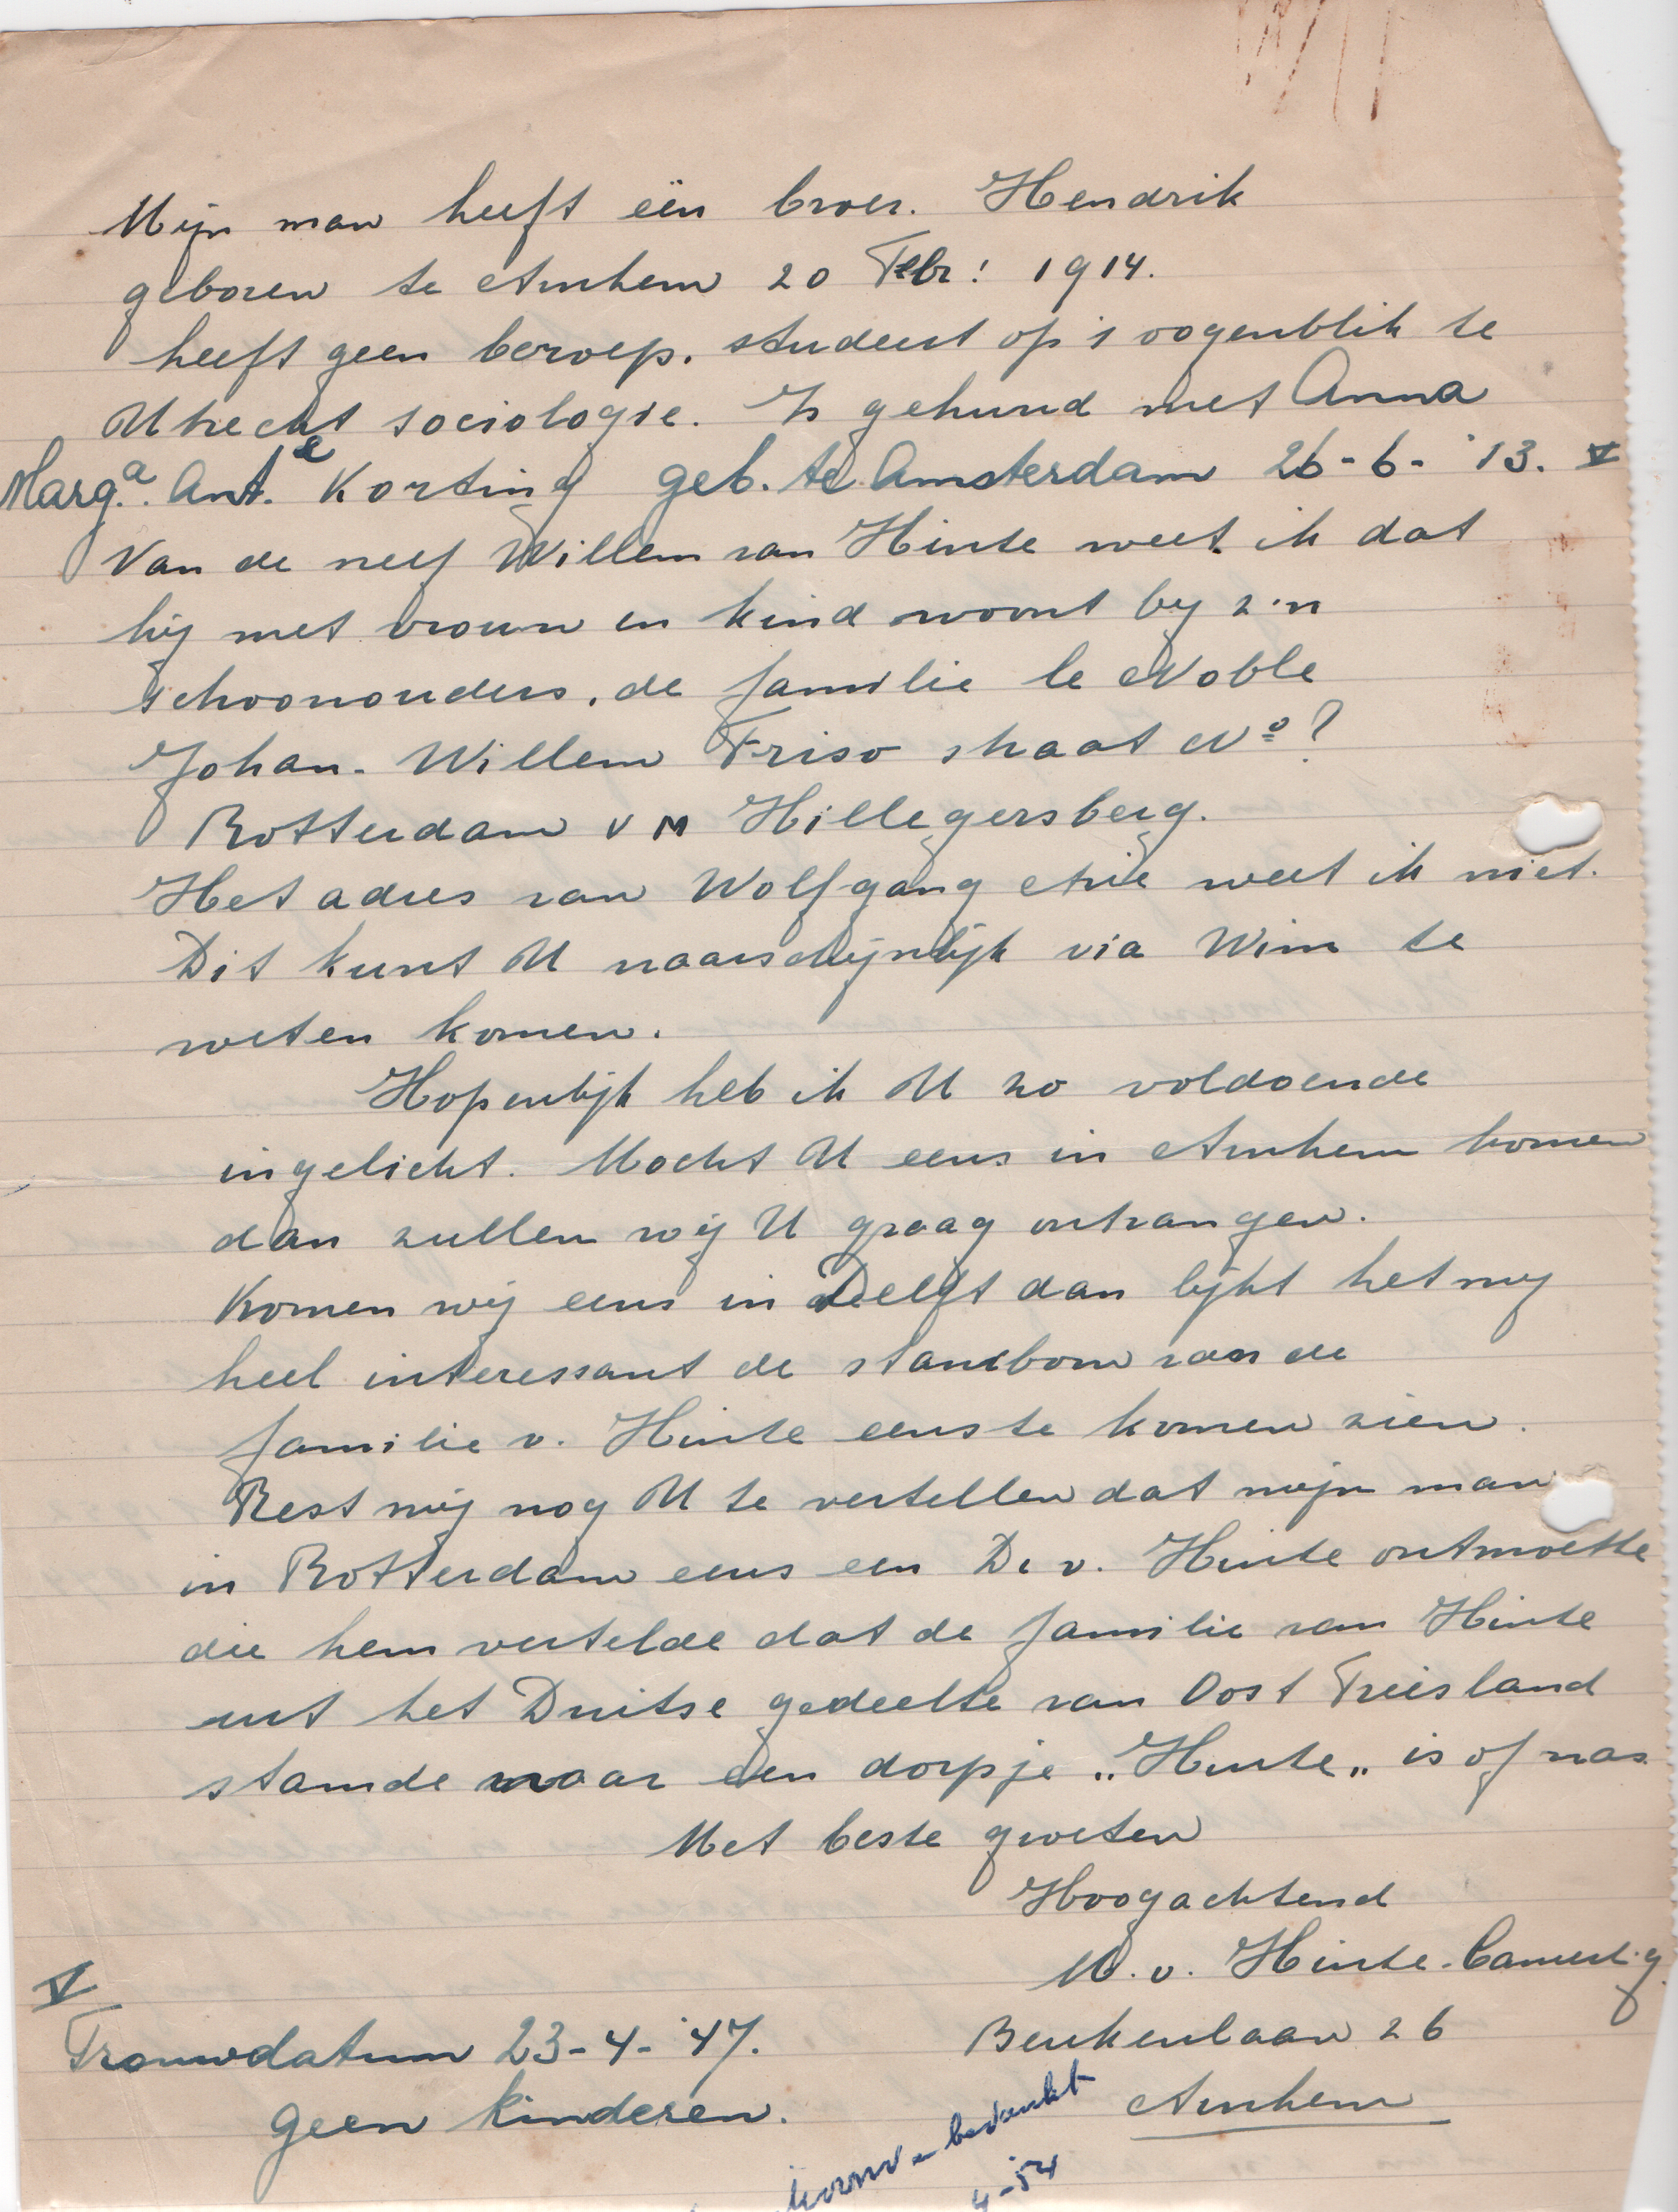 Mijn man heeft één broer. Hendrik
geboren te Arnhem 20 Febr: 1914.
heeft geen beroep. studeert op 's oogenblik te
Utrecht sociologie. Is gehuwd met Anna
Marg.a Ant.e Korting geb. te Amsterdam 26-6-'13. V
Van de neef Willem van Hinte weet ik dat
hij met vrouw en kind woont bij z'n
schoonouders, de familie le Noble
Johan-Willem Friso straat No?
Rotterdam Hillegersberg.
Het adres van Wolfgang weet ik niet.
Dit kunt U waarschijnlijk via Wim te
weten komen.
Hopenlijk heb ik U zo voldoende
ingelicht. Mocht U eens in Arnhem komen
dan zullen wij U graag ontvangen.
Komen wij eens in Delft dan lijkt het mij
heel interessant de stamboom van de
familie v. Hinte eens te komen zien.
Rest mij nog U te vertellen dat mijn man
in Rotterdam eens een Dr v. Hinte ontmoette
die hem vertelde dat de familie van Hinte
uit het Duitse gedeelte van Oost Friesland
stamde waar een dorpje „Hinte„ is of was
Met beste groeten
Hoogachtend
M. v. Hinte-
V
Trouwdatum 23-4-'47.
Beukenlaan 26
geen kinderen.
Arnhem
bedankt
4-'54